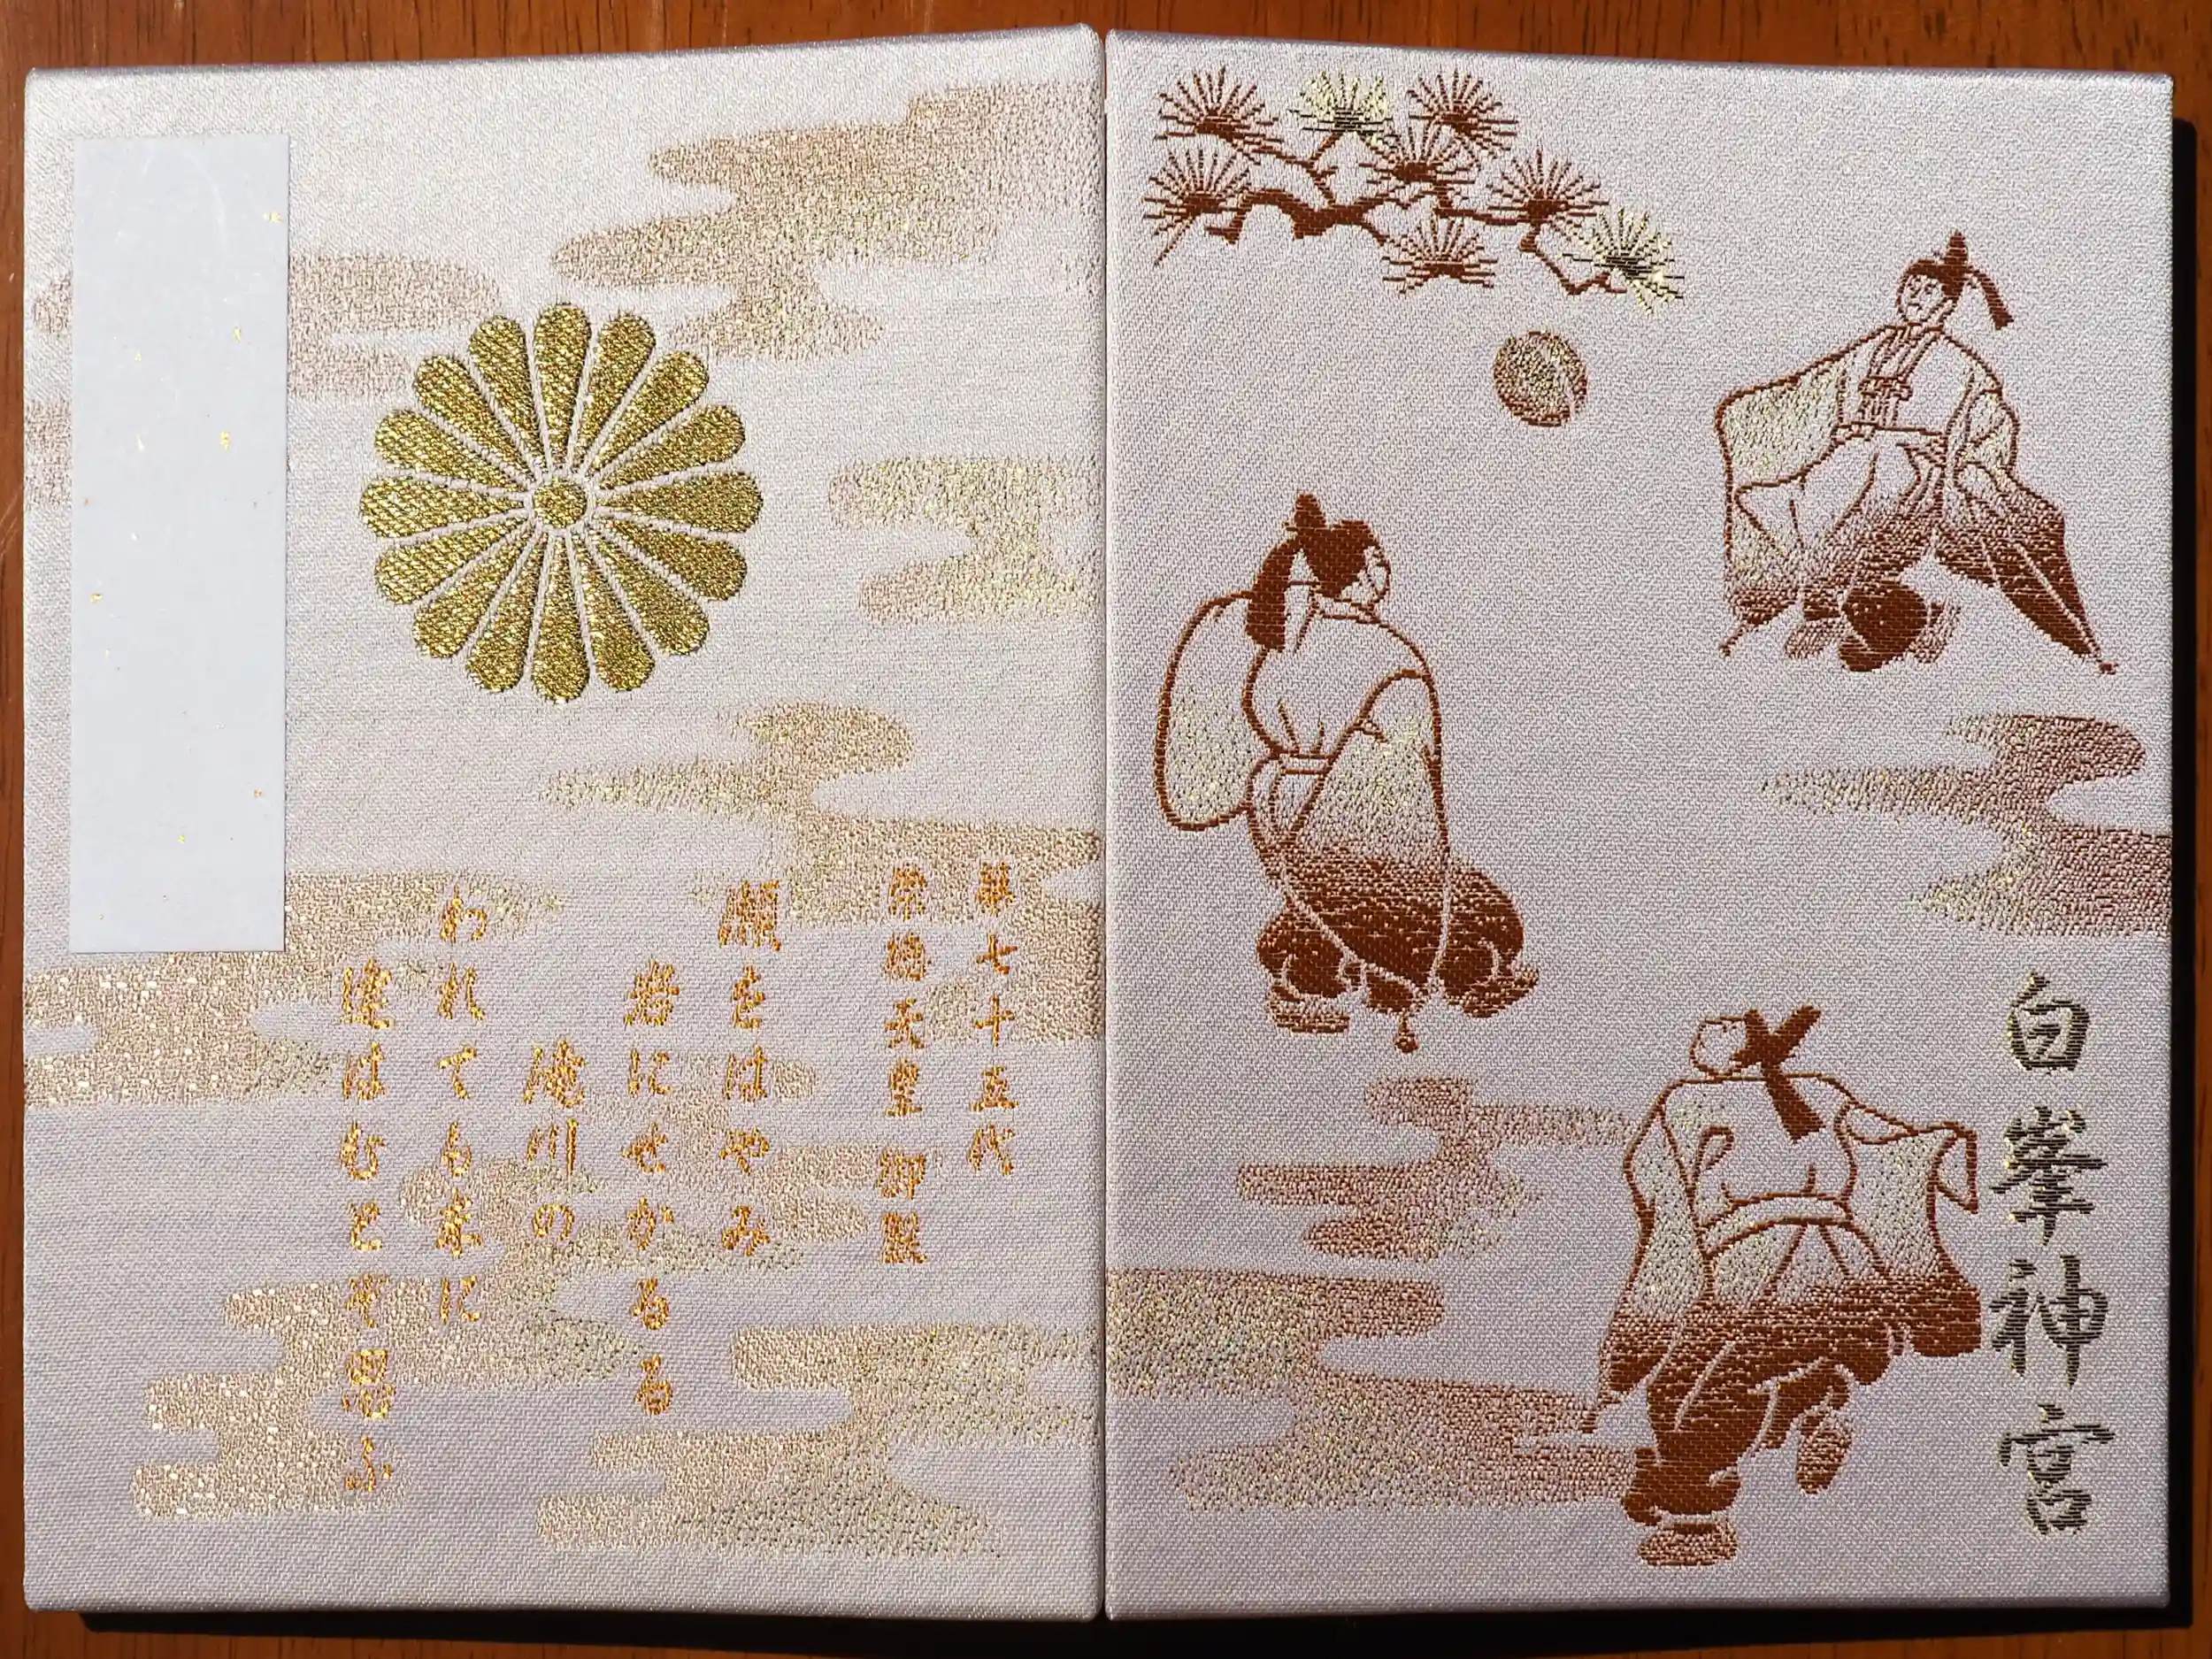 白峯神宮
第七十五代
崇徳天皇 御製
瀬をはやみ
岩にせかるる
滝川の
われても末に
逢はむとぞ思ふ